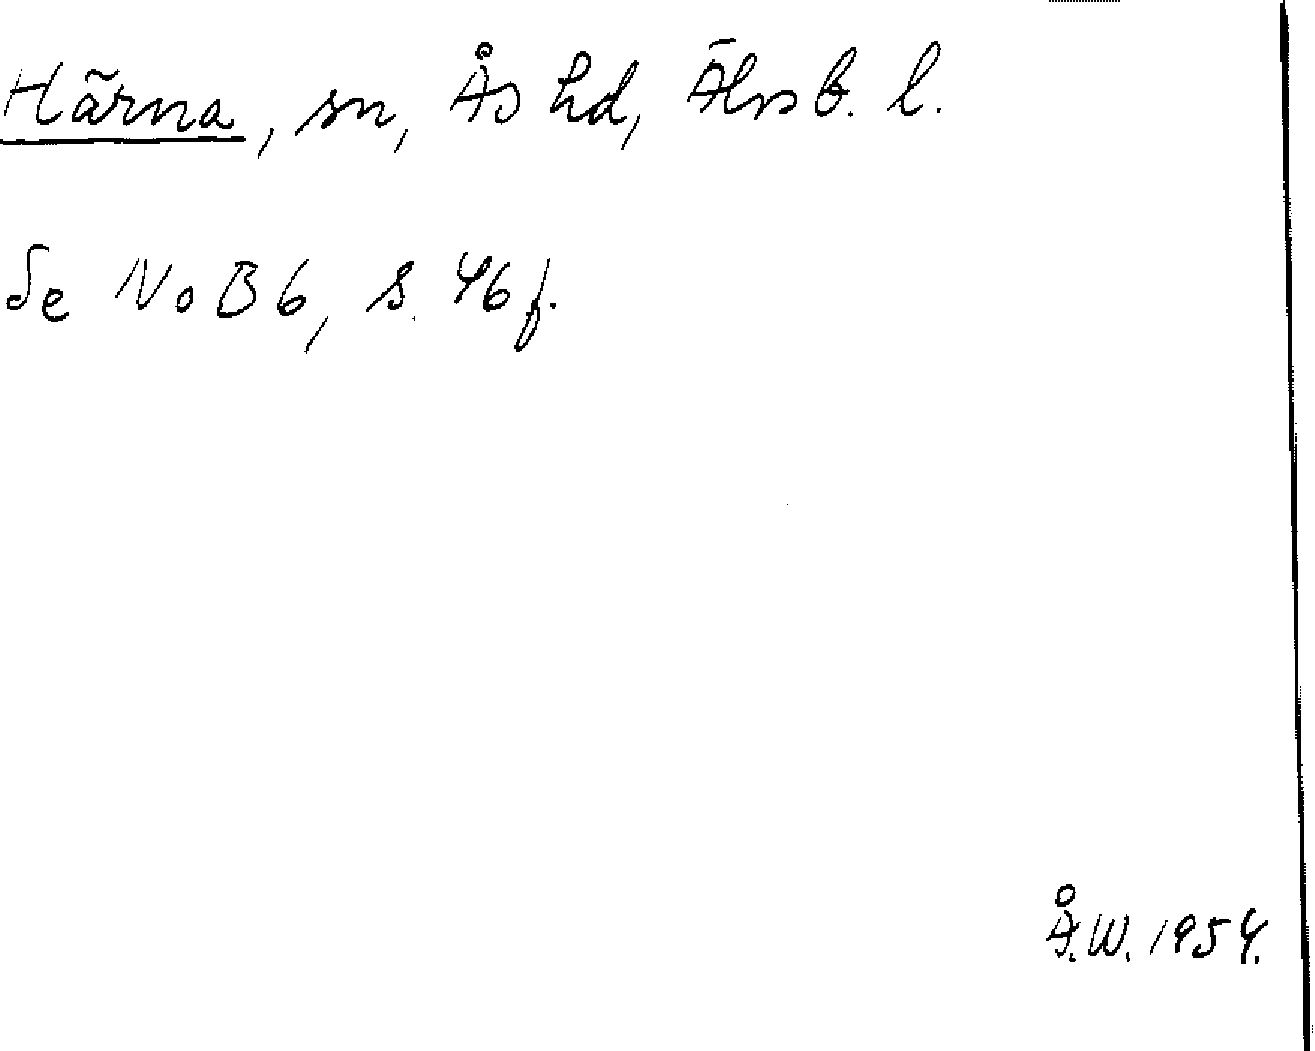 Härna, sn, Ås hd, Älvsb. l.
Se NoB 6, s. 46 f.
Å.W. 1954.